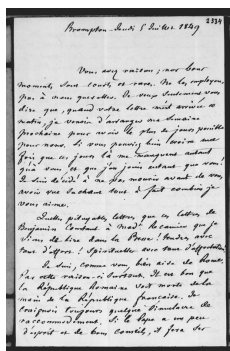 2334
Brompton. Jeudi 5 Juillet 1849
Vous avez raison; nos bons
moments sont courts et rares. Ne les employons
pas à nous quereller. Je veux seulement vous
dire que, quand votre lettre m'est arrivée ce
matin, je venais d'arranger ma semaine
prochaine pour avoir le plus de jours possible
pour nous. Si vous pouviez bien
fois que ces jours là me manquent autant
qu'à vous, et que j'en jouis autant que vous!
Je suis décidé à ne pas mourir avant de vous
avoir vue sachant tout à fait combien je
vous aime.
Quelles pitoyables lettres que ces lettres de
Benjamin Constant à Mad. Récamier que je
viens de lire dans la Presse! tendres avec
tout d'effort! Spirituelles avec tant d'affectation
Je suis, comme vous, bien aise de Rome,
par cette raison-là surtout. Il est bon que
la République Romaine soit morte de la
main de la République française. Je
craignais toujours quelque
raccommodement. Si le Pape a un peu
d'esprit et de bons conseils, il fera sur